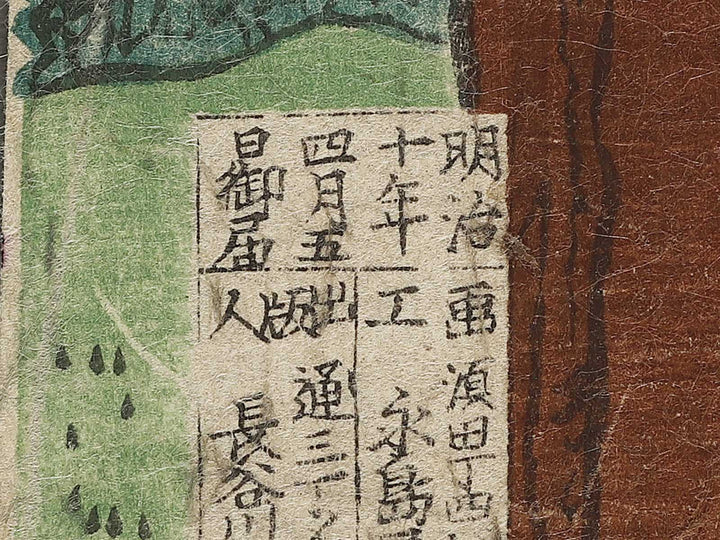 明治
十年
四月五
日御届
画
工
須田
永島
出版
人
通三丁
長谷川